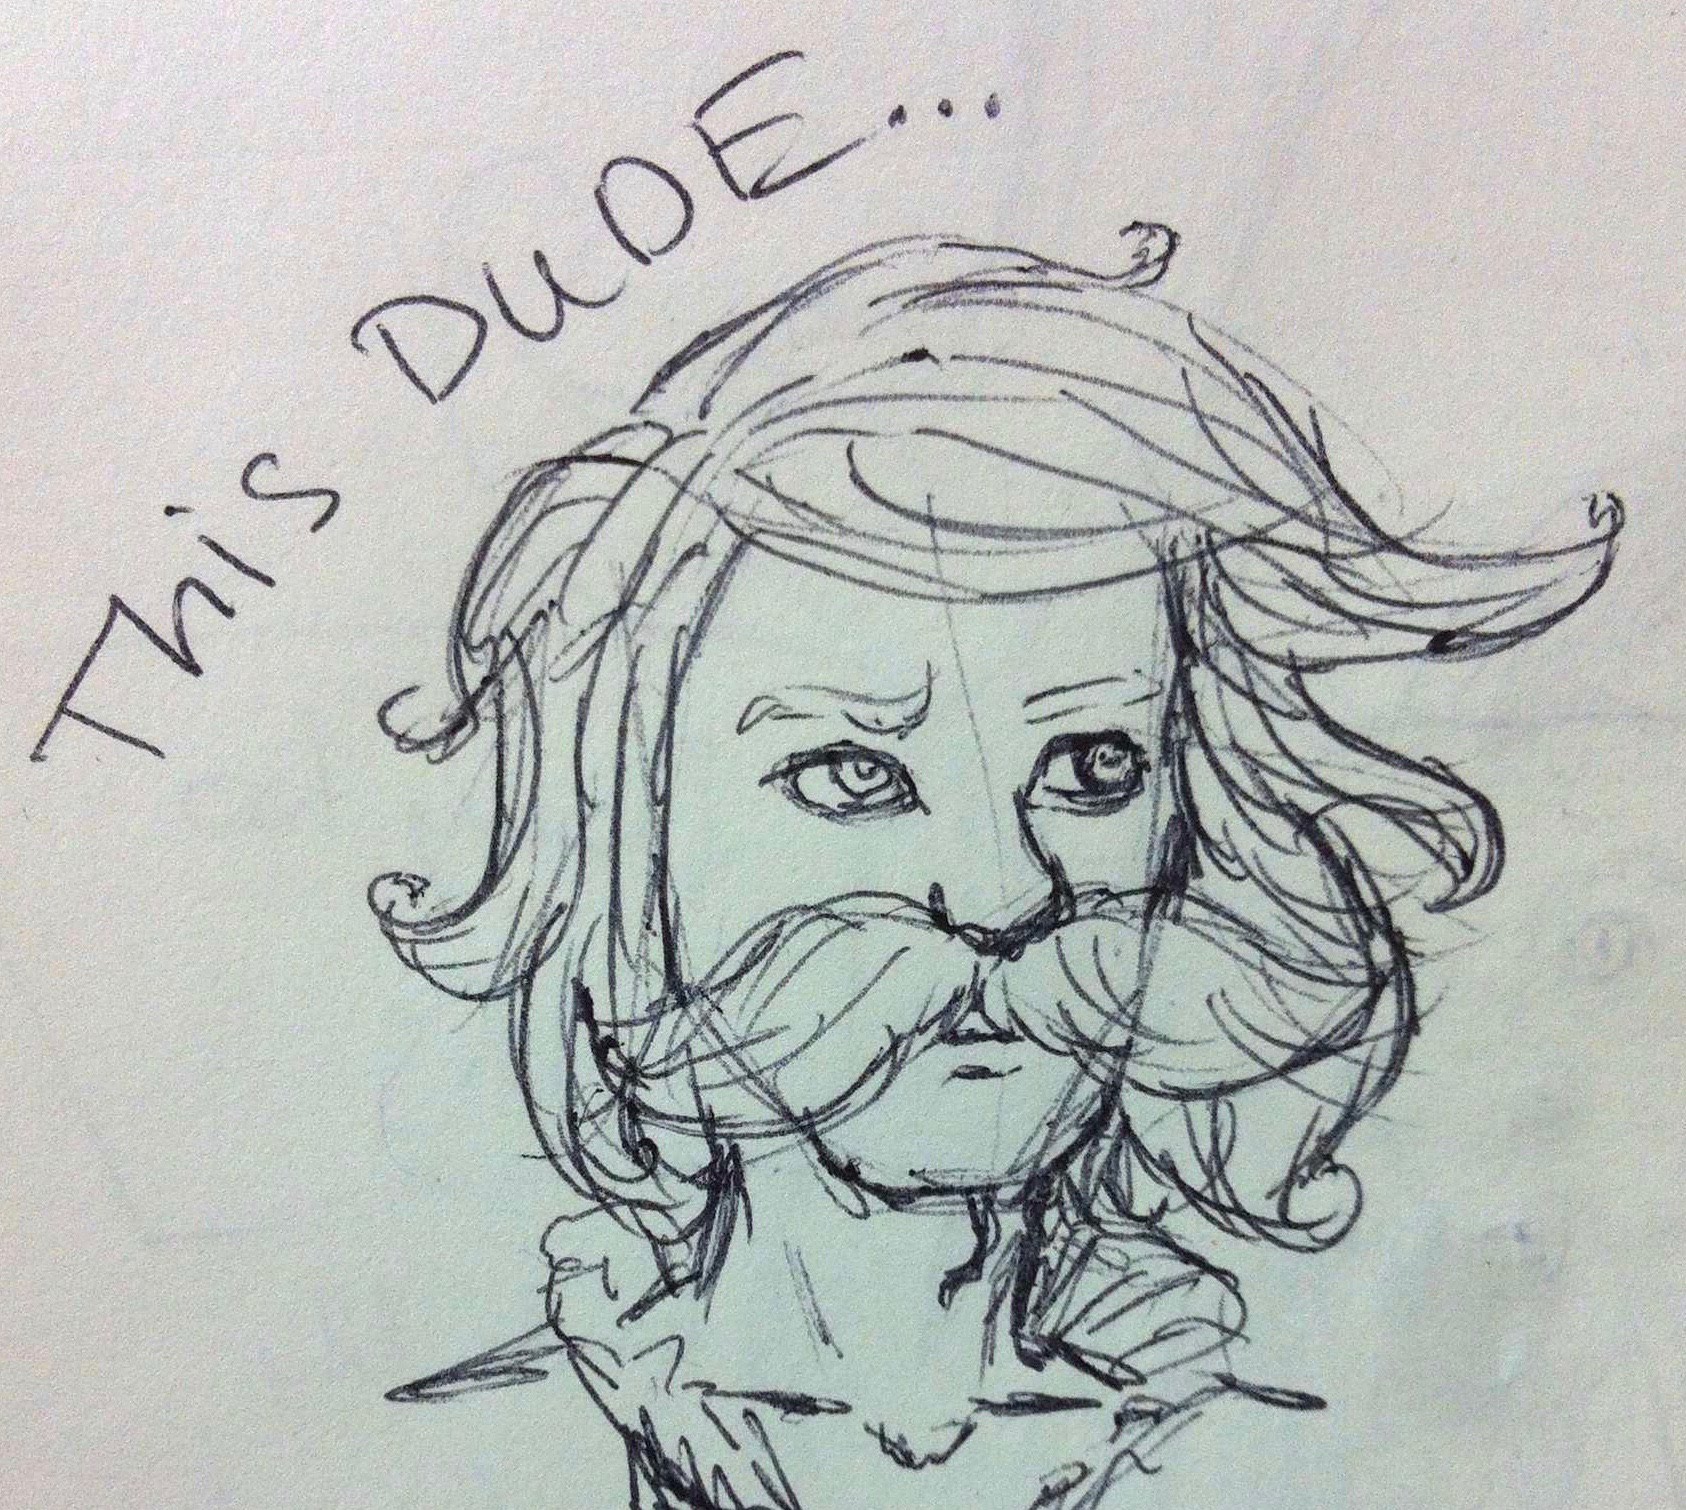 This DUDE...